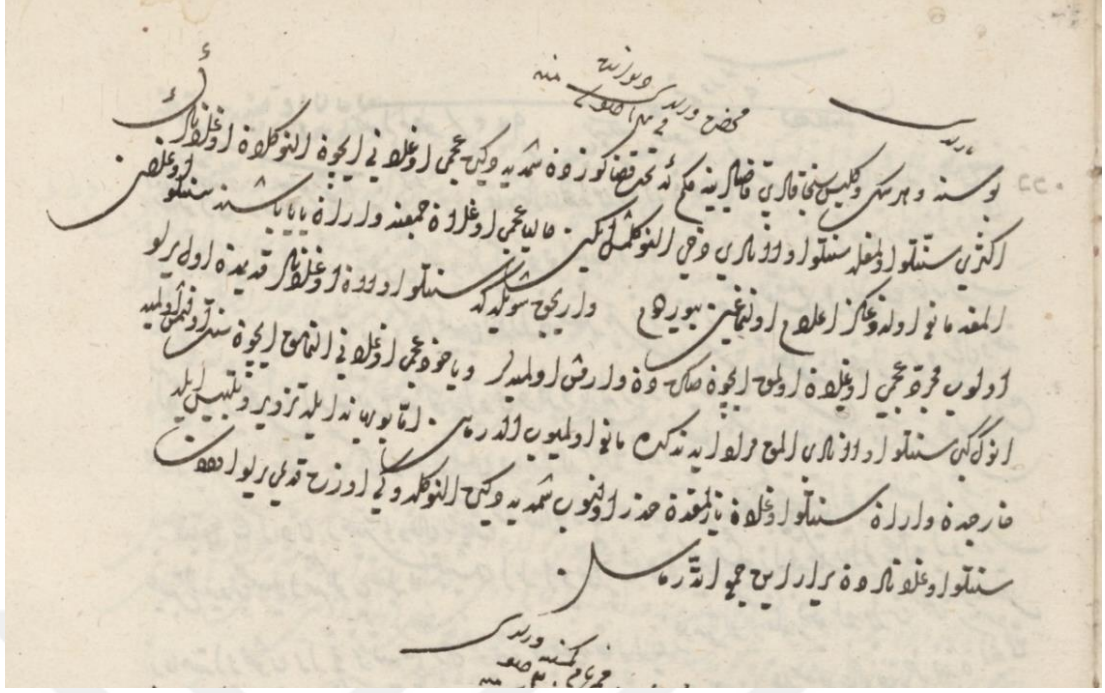 یازلدی
ویرلدی
بوسنه و هرسك و كلیس سنجاقلری قاضیلرینه حكم كه تحت قضاكوزده شمدیه دكین عجمی اوغلانی ایچون النو كلان اوغلانلرك
اكثری سنتلو اولمغله سنتلو اولانلری دخی النو كلمش ایكن حالیا عجمی اوغلانی جمعنه وارانلر سنتلو اوغلان
المغه مانع اولدوغكز اعلام اولنمغین بیوردم كه واریجق شویله كه سنتلو اولان اوغلانلر قدیمدن یرلو
اولوب مجرد عجمی اوغلانی اولمق ایچون صكره دن وارمش اولمیه لر و یاخود عجمی اوغلانی المامق ایچون سنت اولنمش اولمیه
انوك كبی سنتلو اولانلری المق مراد ایدنلره مانع اولمیوب الدره سن اما بو بهانه ایله تزویر و تلبیس ایله
خارجدن وارانلر سنتلو اوغلان یازلمقدن حذر اولنوب شمدیه دكین النو كلدوكی اوزره قدیمی یرلو اولان
سنتلو اوغلانلردن یرارلرین جمع اتدره سن
ویرلدی